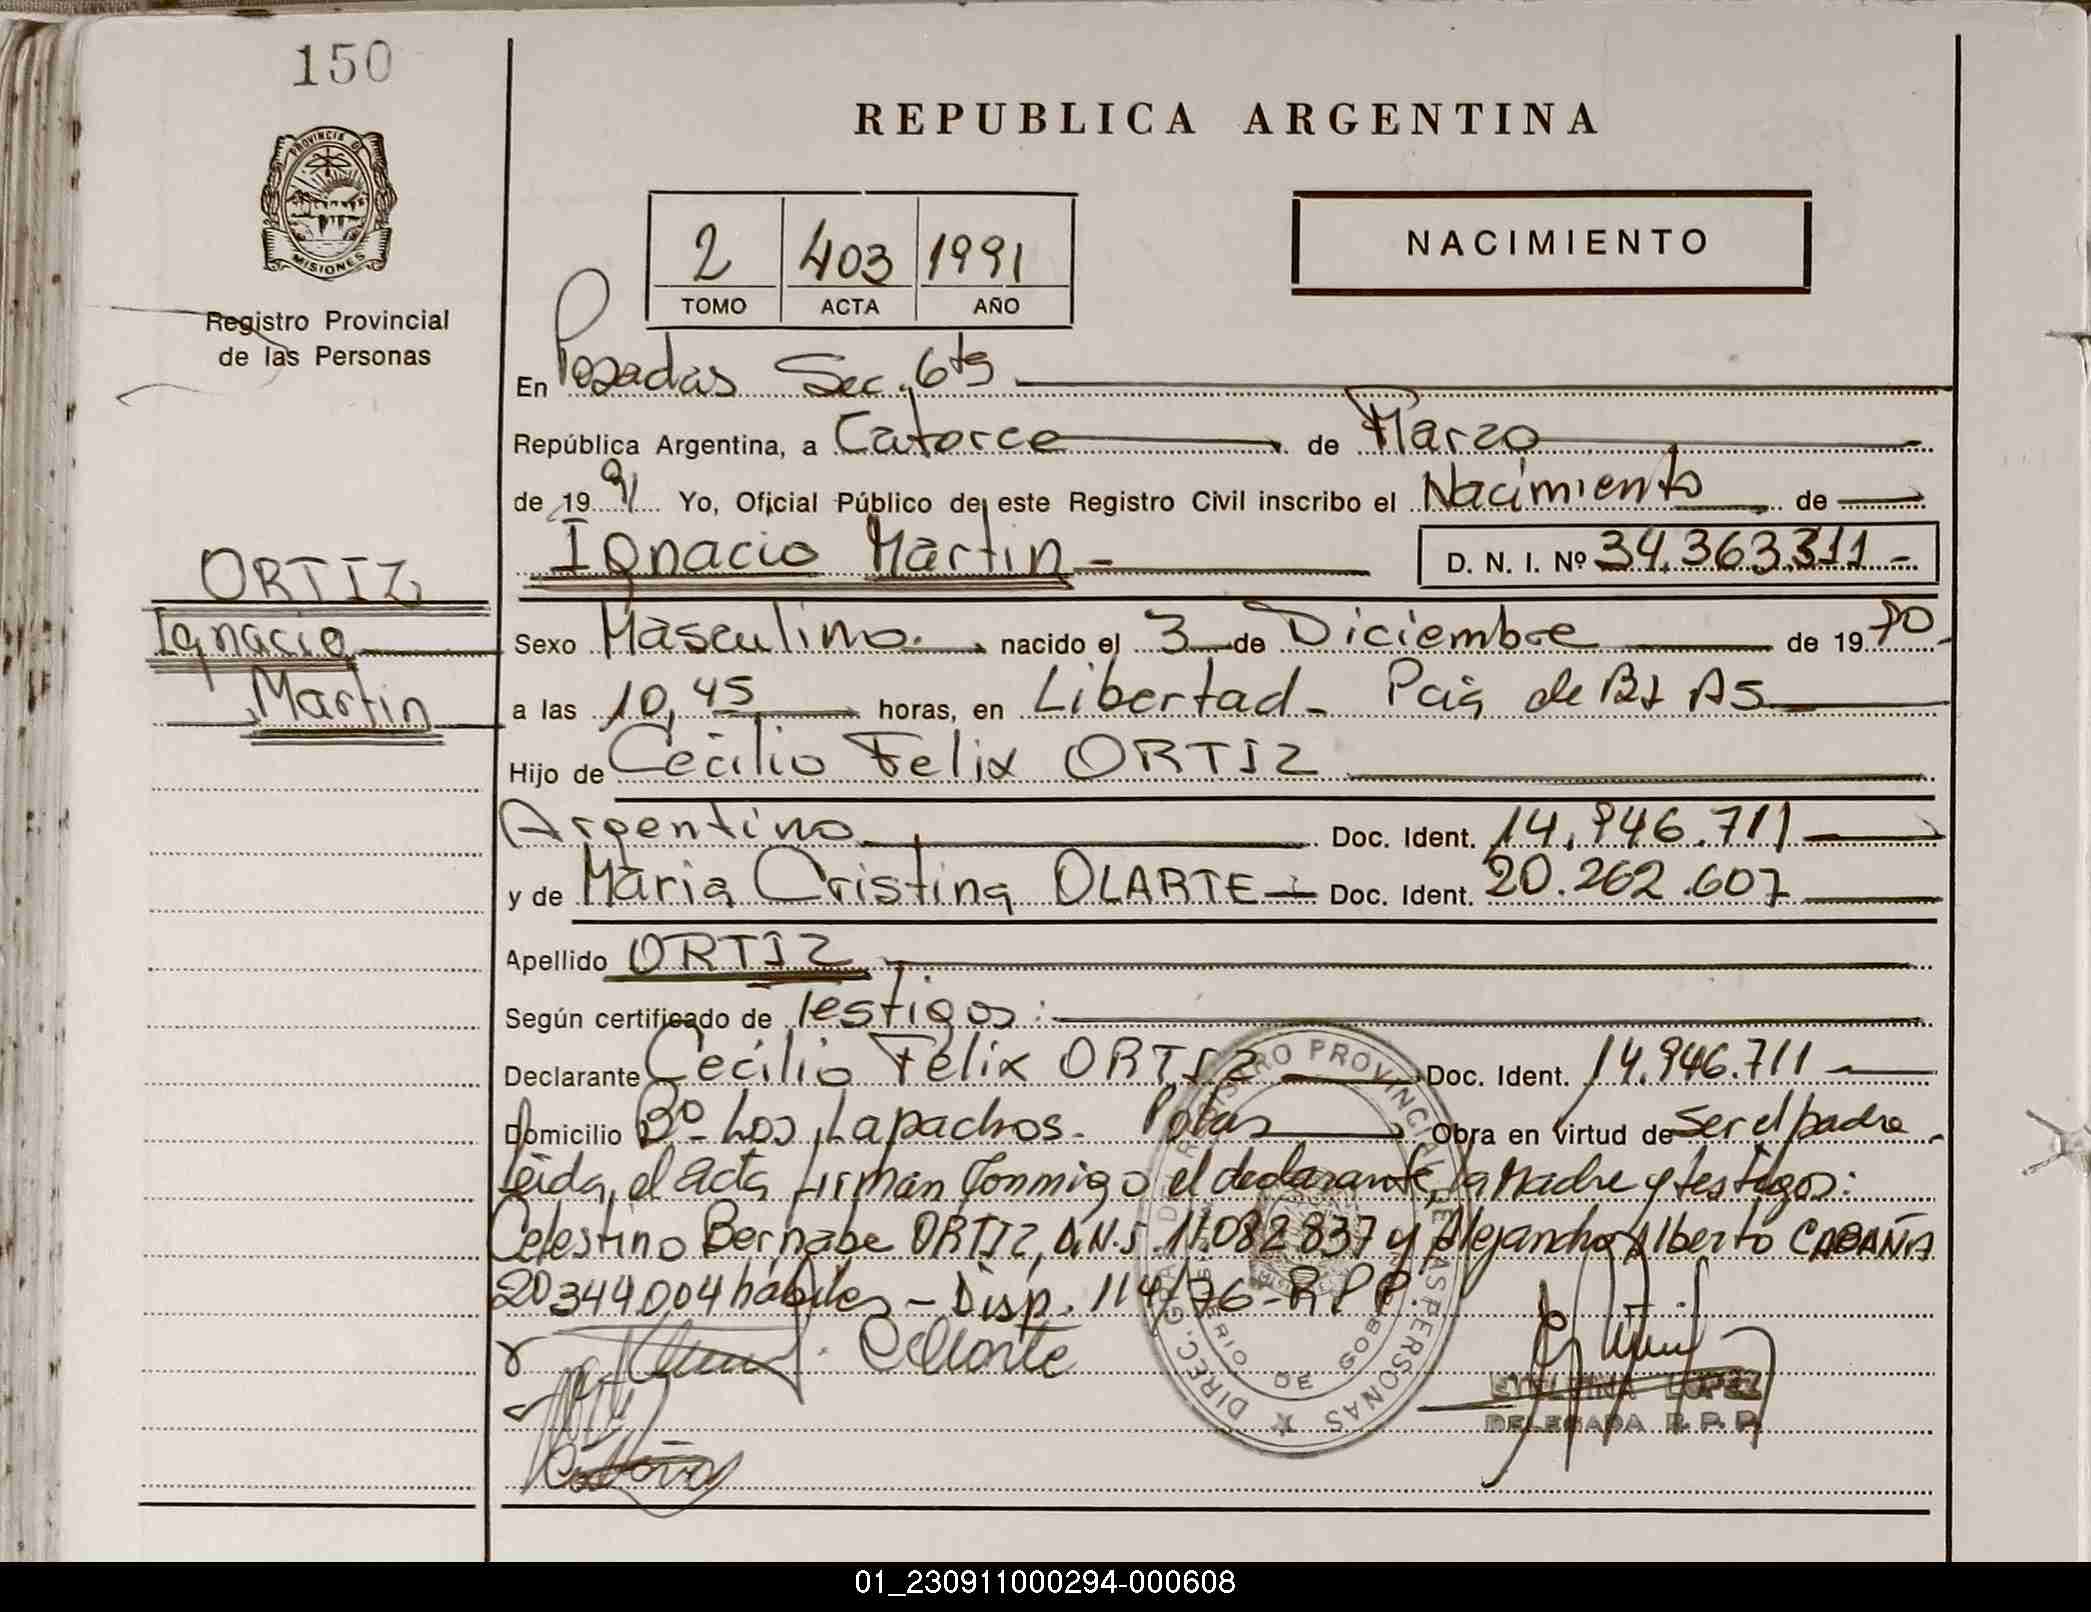 150
REPUBLICA ARGENTINA
PROVINCIA DE
MISIONES
Registro Provincial
de las Personas
2 403 1991
TOMO ACTA AÑO
NACIMIENTO
En Posadas Sec. 6ta
República Argentina, a Catorce de Marzo
de 19 91 Yo, Oficial Público de este Registro Civil inscribo el Nacimiento de
Ignacio Martin - D. N. I. Nº 34.363.311 -
ORTIZ
Ignacio
Martin
Sexo Masculino. nacido el 3 de Diciembre de 19
a las 10,45 horas, en Libertad - Pcia de Bs As
Hijo de Cecilio Felix ORTIZ
Argentino Doc. Ident. 14.946.711
y de Maria Cristina OLARTE Doc. Ident. 20.262.607
Apellido ORTIZ
Según certificado de Testigos:
Declarante Cecilio Felix ORTIZ Doc. Ident. 14.946.711
Domicilio Bº - Los Lapachos - Pdas Obra en virtud de Ser el padre
Leida el acta firman conmigo el declarante, la Madre y testigos:
Celestino Bernabe ORTIZ, D.N.I. 11.082.837 y Alejandro Alberto CABAÑA
20344004 hábiles - Disp. 114/76 - R P P.
DIREC. GRAL. DEL REGISTRO PROVINCIAL DE LAS PERSONAS
MINISTERIO DE GOBIERNO
LOPEZ
DELEGADA R. P. P.
01_230911000294-000608